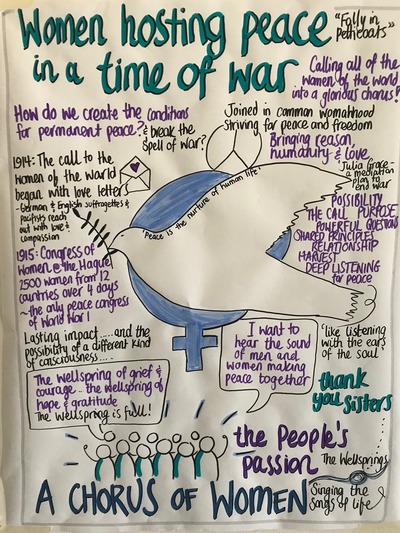 Women hosting peace
in a time of war
"Folly in
Petticoats"
Calling all of the
women of the world
into a glorious chorus!
How do we create the conditions
for permanent peace? & break the
spell of war?
Joined in common womanhood
striving for peace and freedom
Bringing reason,
humanity & love
1914: The call to the
women of the world
began with love letter
- German & English suffragettes &
pacifists reach
out with love &
compassion
'Peace is the nurture of human life'
'Julia Grace-
a mediation
plan to
end war
POSSIBILITY
THE CALL PURPOSE
POWERFUL QUESTIONS
SHARED PRINCIPLES
RELATIONSHIP
HARVEST
DEEP LISTENING
for peace
1915: Congress of
Women @ the Hague
2500 women from 12
countries over 4 days
~the only peace congress
of World War 1
Lasting impact.....and the
possibility of a different kind
of consciousness....
I want to
hear the sound
of men and
women making
peace together
'like listening
with the ears
of the soul'
The Wellspring of grief &
courage... the wellspring of
hope & gratitude
The Wellspring is full!
thank
you sisters
the People's
passion
The Wellsprings
Singing the
Songs of life
A CHORUS OF WOMEN